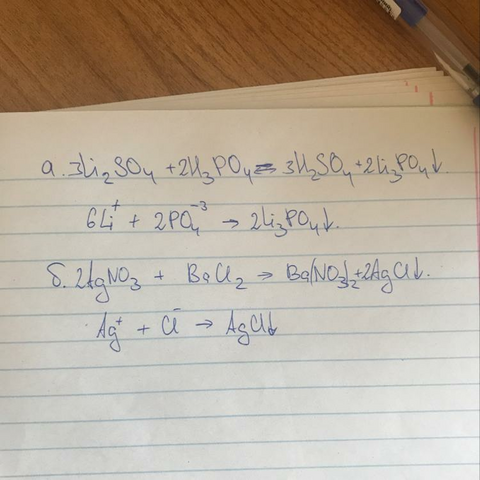 а. 3Li₂SO₄ + 2H₃PO₄ = 3H₂SO₄ + 2Li₃PO₄↓.
6Li⁺ + 2PO₄⁻³ → 2Li₃PO₄↓.
б. 2AgNO₃ + BaCl₂ → Ba(NO₃)₂ + 2AgCl↓.
Ag⁺ + Cl⁻ → AgCl↓